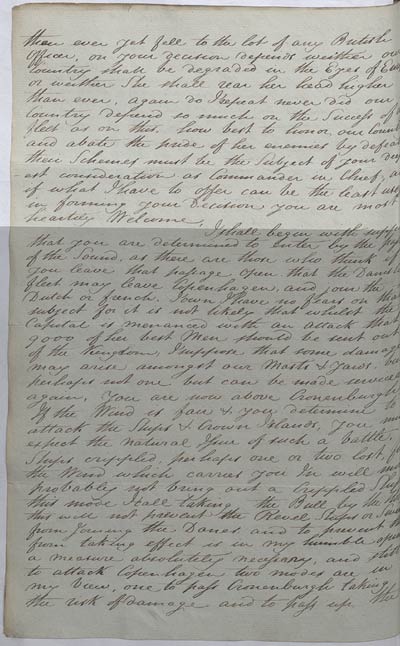 than ever yet fell to the lot of any British
Officer, on your decision depends weither our
Country shall be degraded in the Eyes of
or weither She shall rear her head higher
than ever, again do I repeat never did our
Country depend so much on the Success of
fleet as on this. how best to honor our
and abate the pride of her enemies by
their Schemes must be the Subject of your
est consideration as Commander in Chief,
if what I have to offer can be the least
in forming your Decision you are most
heartily Welcome,
I shall begin with
that you are determined to enter by the
of the Sound, as there are those who think if
you leave that passage open that the
fleet may leave Copenhagen and join the
Dutch or french. I own I have no fears on that
subject for it is not likely that whilst the
Capital is menanced with an attack that
9000 of her best Men should be sent out
of the Kingdom, I suppose that some damage
may arise amongst our Masts & Yards,
perhaps not one but can be made
again, You are now above Cronenburgh
If the Wind is fair & you determine to
attack the Ships & Crown Islands, you
expect the natural Issue of such a battle,
Ships crippled, perhaps one or two lost,
the Wind which carries you In will
probably not bring out a Crippled Ship
this mode I call taking the Bull by the
this will not prevent the Revel Ships or
from Joining the Danes, and to prevent
from taking effect is in my humble
a measure absolutely necessary, and still
to attack Copenhagen two modes are in
my View, one to pass Cronenburgh taking
the risk of damage and to pass up the